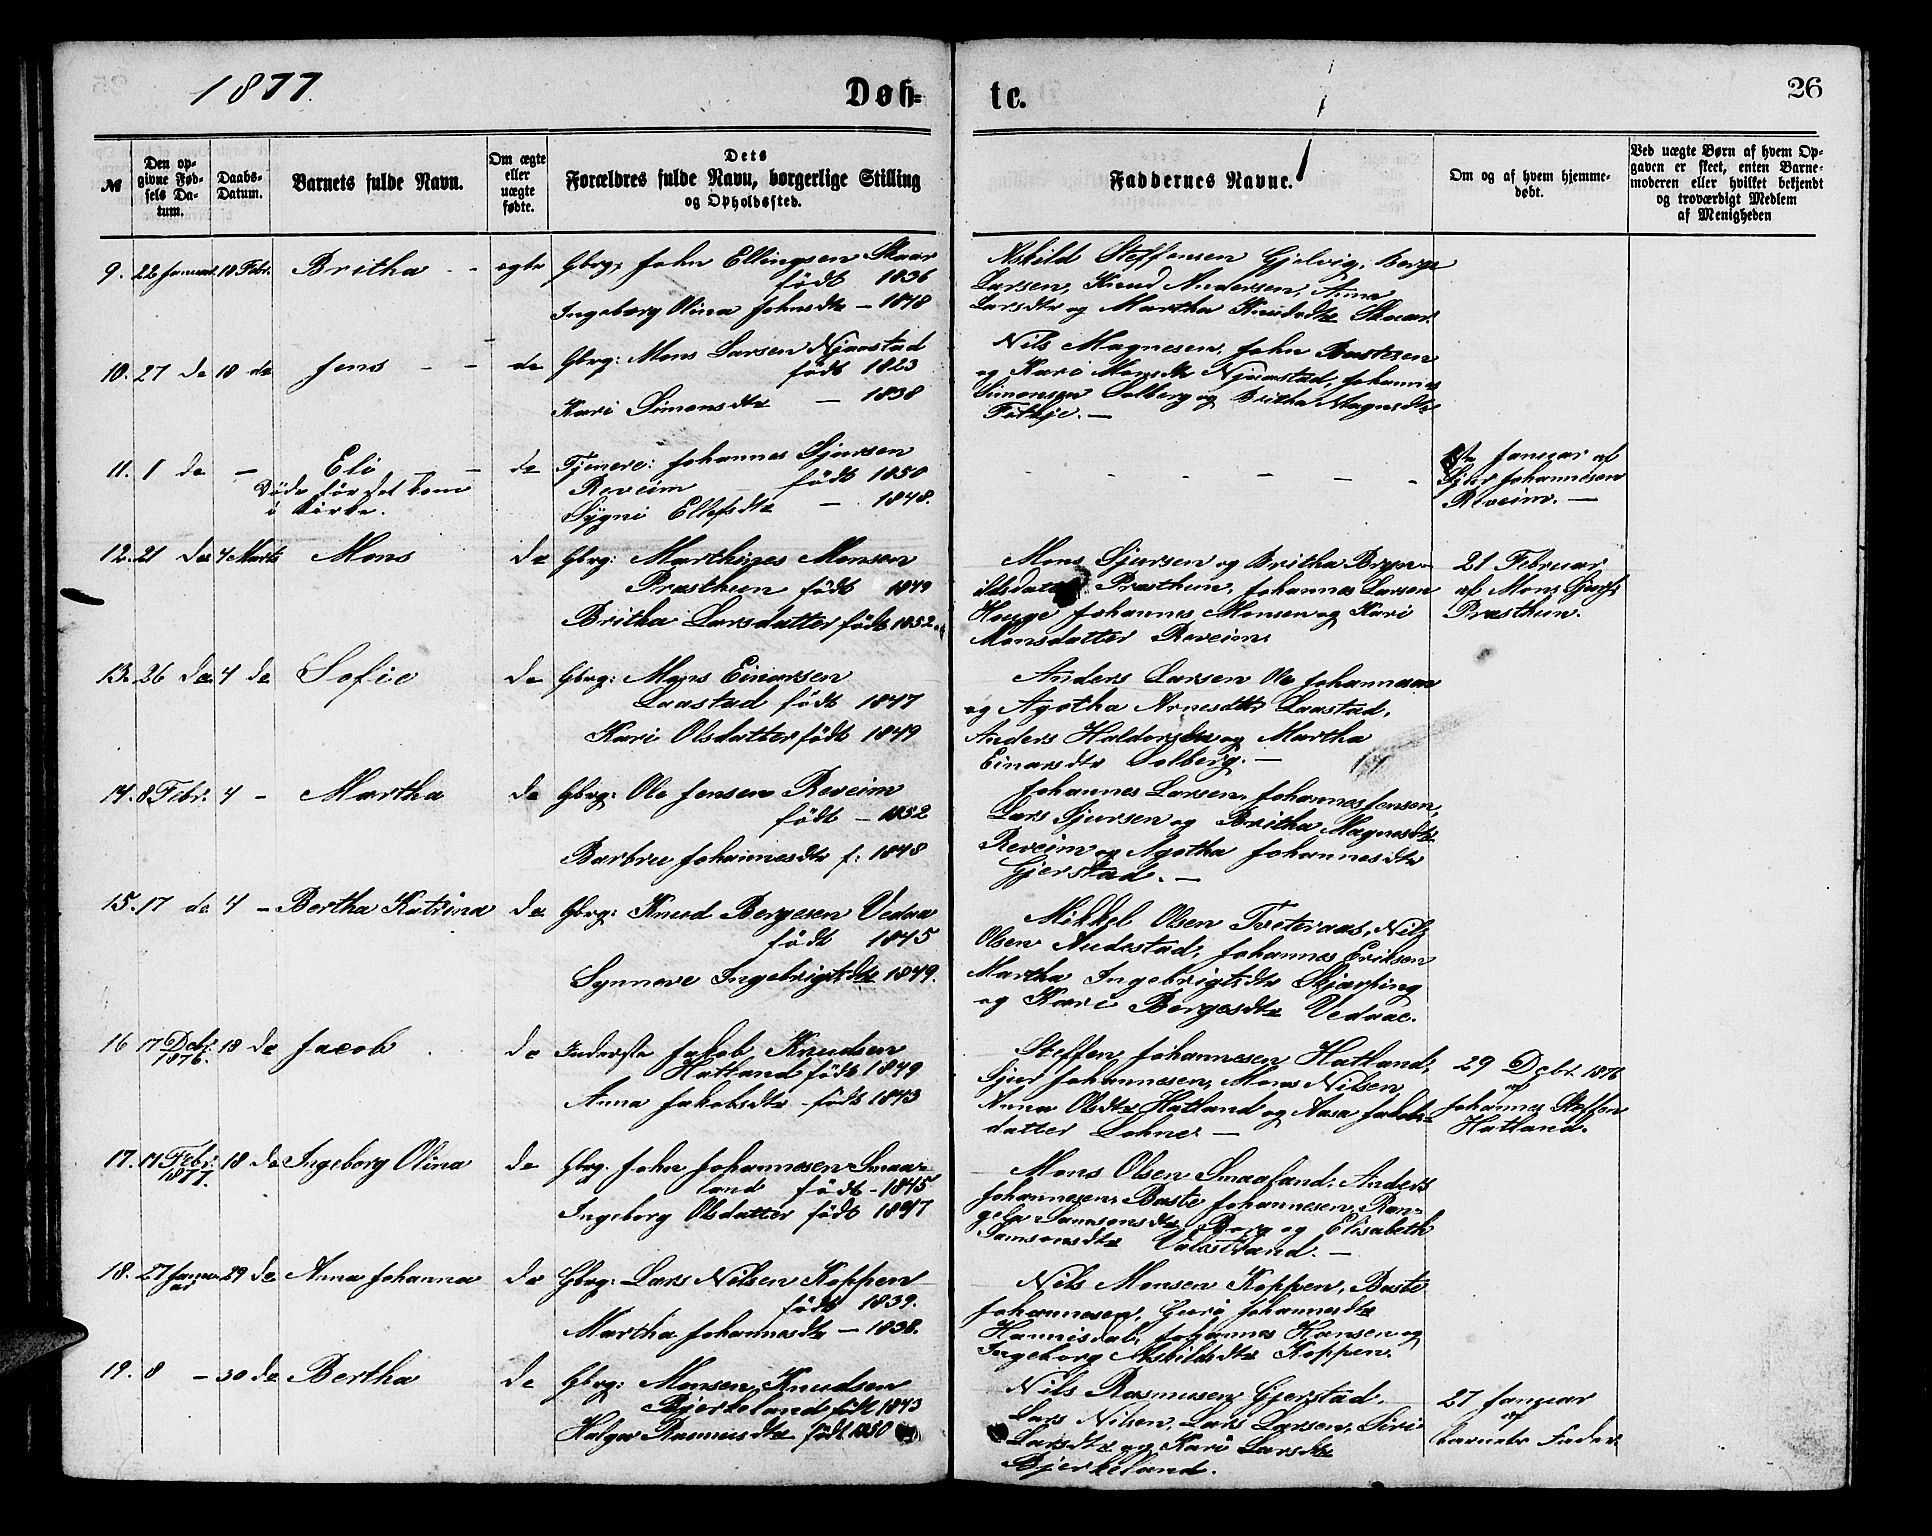 1877.
Døb=
te.
26
№
Den op-
givne Fød-
sels Da-
tum.
Daabs-
Datum.
Barnets fulde Navn.
Om ægte
eller
uægte
fødte.
Dets
Forældres fulde Navn, borgerlige Stilling
og Opholdssted.
Faddernes Navne.
Om og af hvem hjemme-
døbt.
Ved uægte Børn af hvem Op-
gaven er skeet, enten Barne-
moderen eller hvilket bekjendt
og troværdigt Medlem
af Menigheden
9. 22 Januar 18 Febr. Britha - - egte Gbrg: John Ellingsen Skaar
født 1836
Ingeborg Olina Johnsdtr - 1848
Askild Steffensen Gjelvig, Berge
Larsen, Knud Andersen, Anna
Larsdtr og Martha Knudsdtr Skaar.
10. 27 de 18 de Jens - - de Gbrg: Mons Larsen Njaastad
født 1823
Kari Simonsdtr - 1838
Nils Magnesen, John Bastesen
og Kari Monsdtr Njaastad, Johannes
Simonsen Solberg og Britha Magnesdtr
11. 1 de - Eli - - de Tjenere: Johannes Sjursen
Døde før det kom
i Kirke.
Reveim født 1850
Sygni Ellefsdtr - 1848.
- - - - -
Januar af
Sjur Johannesen
Reveim. -
12. 21 de 4 Marts Mons de Gbrg: Marthines Monsen
Præsthun født 1849
Britha Larsdatter født 1852.
Mons Sjursen og Britha Bryn-
ildsdatter Præsthun, Johannes Larsen
Houge Johannes Monsen og Kari
Monsdatter Reveim
21 Februar
af Mons Sjurs.
Præsthun.
13. 26 de 4 de Sofie de Gbrg: Mons Einarsen
Laastad født 1847
Kari Olsdatter født 1849
Anders Larsen Ole Johannesen
og Agotha Arnesdtr Laastad,
Anders Haldorsen og Martha
Einarsdtr Solberg. -
14. 8 Febr. 4 - Martha de Gbrg: Ole Jensen Reveim
født - 1852
Barbru Johannesdtr f: 1848
Johannes Larsen, Johannes Jensen,
Lars Sjursen og Britha Magnesdtr
Reveim og Agotha Johannesdtr
Gjerstad. -
15. 17 de 4 - Bertha Katrina de Gbrg: Knud Bergesen Vedaa
født 1845
Synneve Ingebrigtsdtr 1849.
Mikkel Olsen Tveteraas, Nils
Olsen Audestad, Johannes Eriksen
Martha Ingebrigtsdtr Skjerping
og Kari Bergesdtr Vedaae.
16 17 Debr. 18 de Jacob. de Inderste Jakob Knudsen
1876.
Hatland født 1849
Anna Jakobsdtr - født 1843
Steffen Johannesen Hatland,
Sjur Johannesen, Mons Nilsen
Anna Olsdtr Hatland og Aasa Jakobs-
datter Lohne. -
29 Debr. 1876
af
Johannes Steffen
Hatland.
17. 11 Febr. 18 de Ingeborg Olina de Gbrg. John Johannesen Smaa-
1877.
land født - 1845
Ingeborg Olsdatter født 1847
Mons Olsen Smaaland, Anders
Johannesen, Baste Johannesen, Ran-
gela Samsonsdtr Berg og Elisabeth
Samsonsdtr Valestrand. -
18. 27 Janu- 29 de Anna Johanna de Gbrg: Lars Nilsen Koppen
ar
født 1839.
Martha Johannesdtr - 1838.
Nils Monsen Koppen, Baste
Johannesen, Guro Johannesdtr
Hannisdal, Johannes Hansen og
Ingeborg Askildsdtr Koppen.
19. 8 - 30 de Bertha de Gbrg: Monsen Knudsen
Bjerkeland født 1843
Helga Rasmusdtr født 1850
Nils Rasmusen Gjerstad.
Lars Nilsen, Lars Larsen, Siri
Larsdtr og Kari Larsdtr
Bjerkeland.
27 Januar
af
barnets Fader.